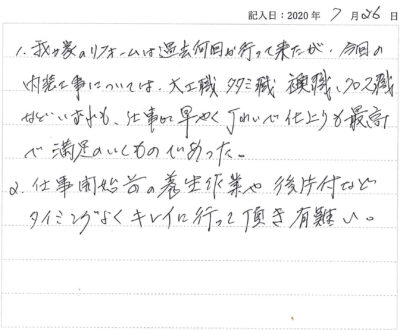 記入日：2020年 7月26日
1. 我が家のリフォームは過去何回か行って来たが、今回の
内装工事については、大工職 タタミ職 襖職、クロス職
などいずれも、仕事が早やく丁ねいで仕上りも最高
で満足のいくものであった。
2. 仕事開始前の養生作業や後片付など
タイミングよくキレイに行って頂き有難い。